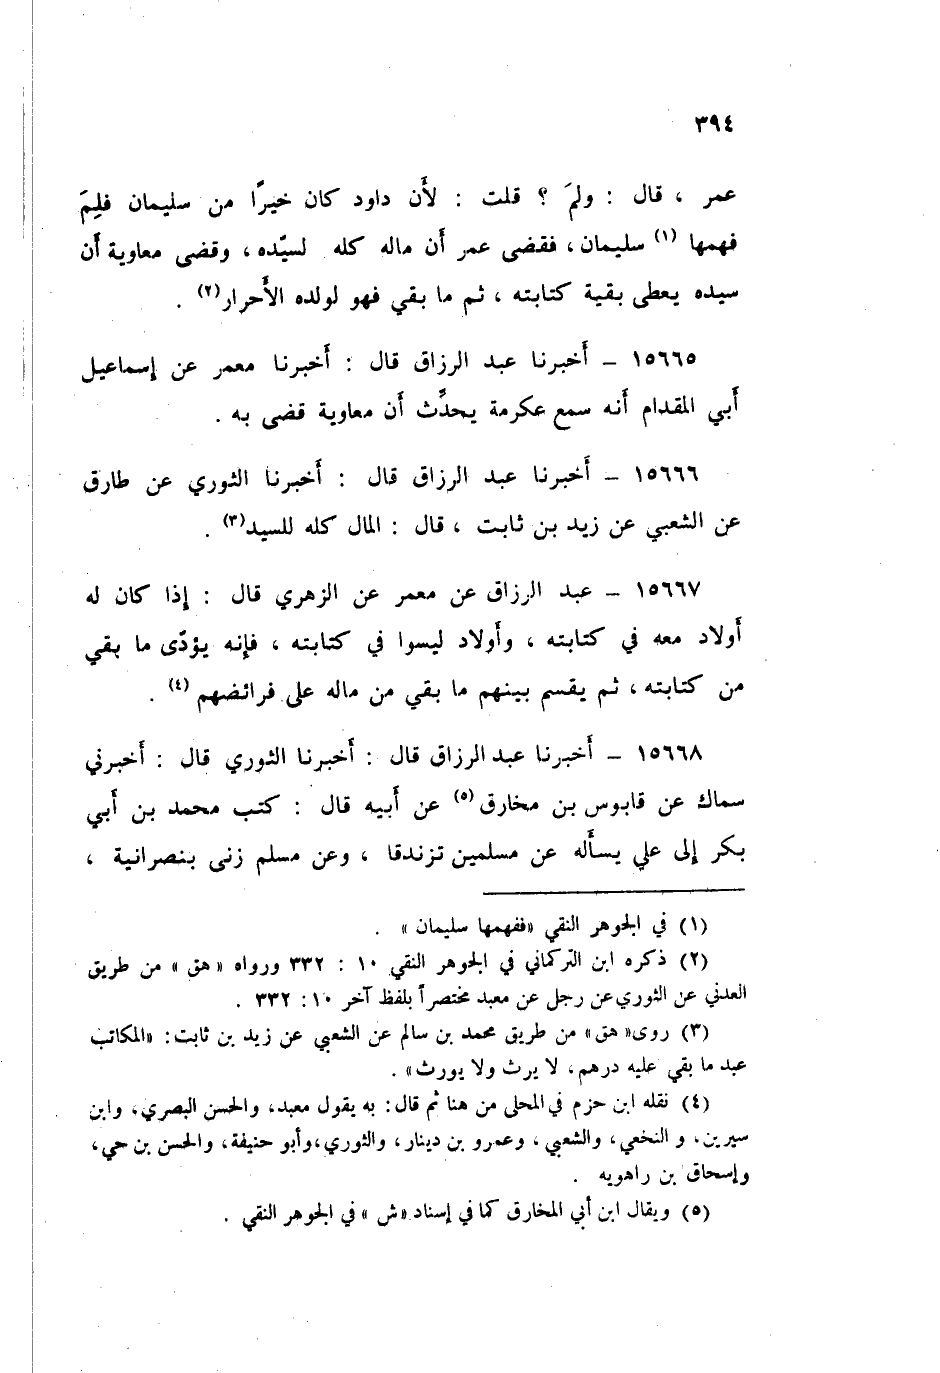 ٣٩٤
عمر ، قال : ولمَ ؟ قلت : لأَن داود كان خيرًا من سليمان فلِمَ
فهمها (١) سليمان ، فقضى عمر أَن ماله كله لسيّده ، وقضى معاوية أَن
سيده يعطى بقية كتابته ، ثم ما بقي فهو لولده الأَحرار(٢) .
١٥٦٦٥ – أَخبرنا عبد الرزاق قال : أَخبرنا معمر عن إسماعيل
أَبي المقدام أَنه سمع عكرمة يحدِّث أَن معاوية قضى به .
١٥٦٦٦ – أَخبرنا عبد الرزاق قال : أَخبرنا الثوري عن طارق
عن الشعبي عن زيد بن ثابت ، قال : المال كله للسيد(٣) .
١٥٦٦٧ – عبد الرزاق عن معمر عن الزهري قال : إذا كان له
أَولاد معه في كتابته ، وأَولاد ليسوا في كتابته ، فإنه يؤدّى ما بقي
من كتابته ، ثم يقسم بينهم ما بقي من ماله على فرائضهم (٤) .
١٥٦٦٨ – أَخبرنا عبد الرزاق قال : أَخبرنا الثوري قال : أَخبرني
سماك عن قابوس بن مخارق (٥) عن أَبيه قال : كتب محمد بن أَبي
بكر إلى علي يسأَله عن مسلمين تزندقا ، وعن مسلم زنى بنصرانية ،
(١) في الجوهر النقي «ففهمها سليمان » .
(٢) ذكره ابن التركماني في الجوهر النقي ١٠ : ٣٣٢ ورواه « هق » من طريق
العدني عن الثوري عن رجل عن معبد مختصراً بلفظ آخر ١٠: ٣٣٢ .
(٣) روى« هق» من طريق محمد بن سالم عن الشعبي عن زيد بن ثابت: «المكاتب
عبد ما بقي عليه درهم، لا يرث ولا يورث» .
(٤) نقله ابن حزم في المحلى من هنا ثم قال: به يقول معبد، والحسن البصري، وابن
سيرين، و النخعي، والشعبي ، وعمرو بن دينار، والثوري،وأبو حنيفة، والحسن بن حي،
وإسحاق بن راهويه .
(٥) ويقال ابن أبي المخارق كما في إسناد «ش » في الجوهر النقي .